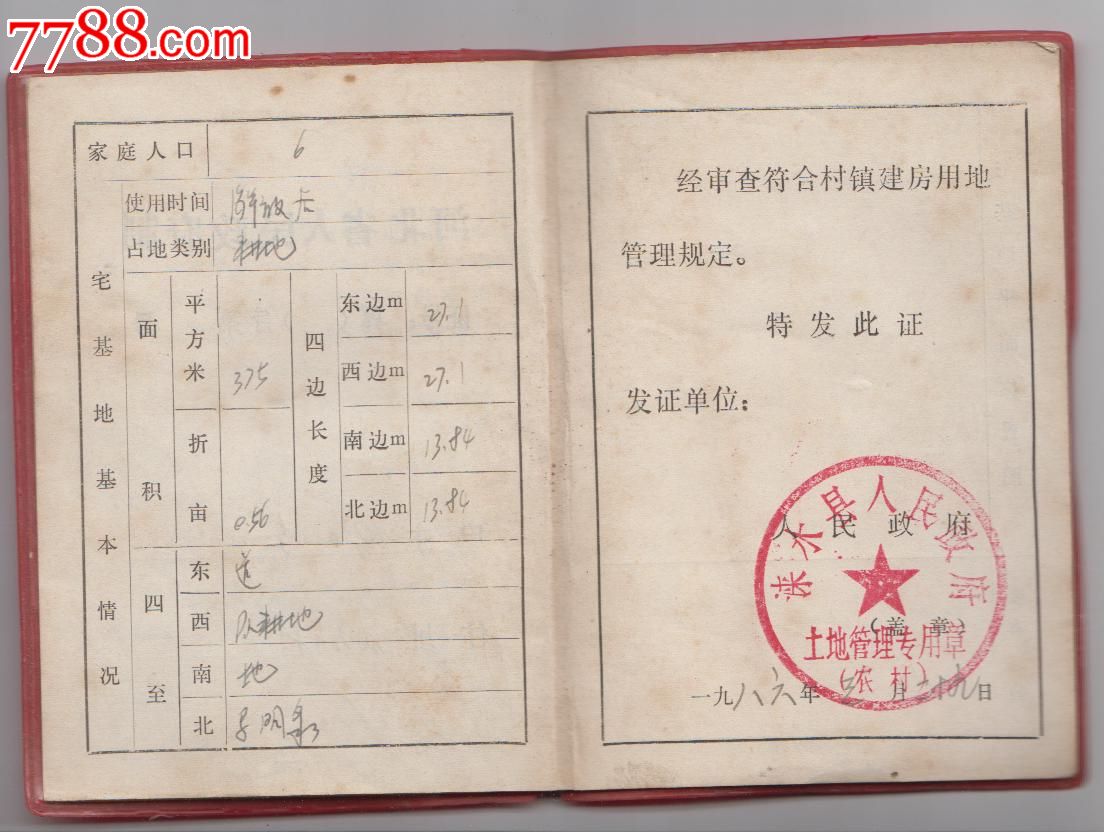 7788.com
家庭人口 6
宅基地基本情况
使用时间 解放后
占地类别 耕地
面积
平方米 375
折亩 0.56
四边长度
东边m 27.1
西边m 27.1
南边m 13.84
北边m 13.84
四至
东 道
西 队耕地
南 地
北
经审查符合村镇建房用地
管理规定。
特发此证
发证单位:
人民政府
(盖章)
涞水县人民政府
土地管理专用章
(农村)
一九八六年 月 日